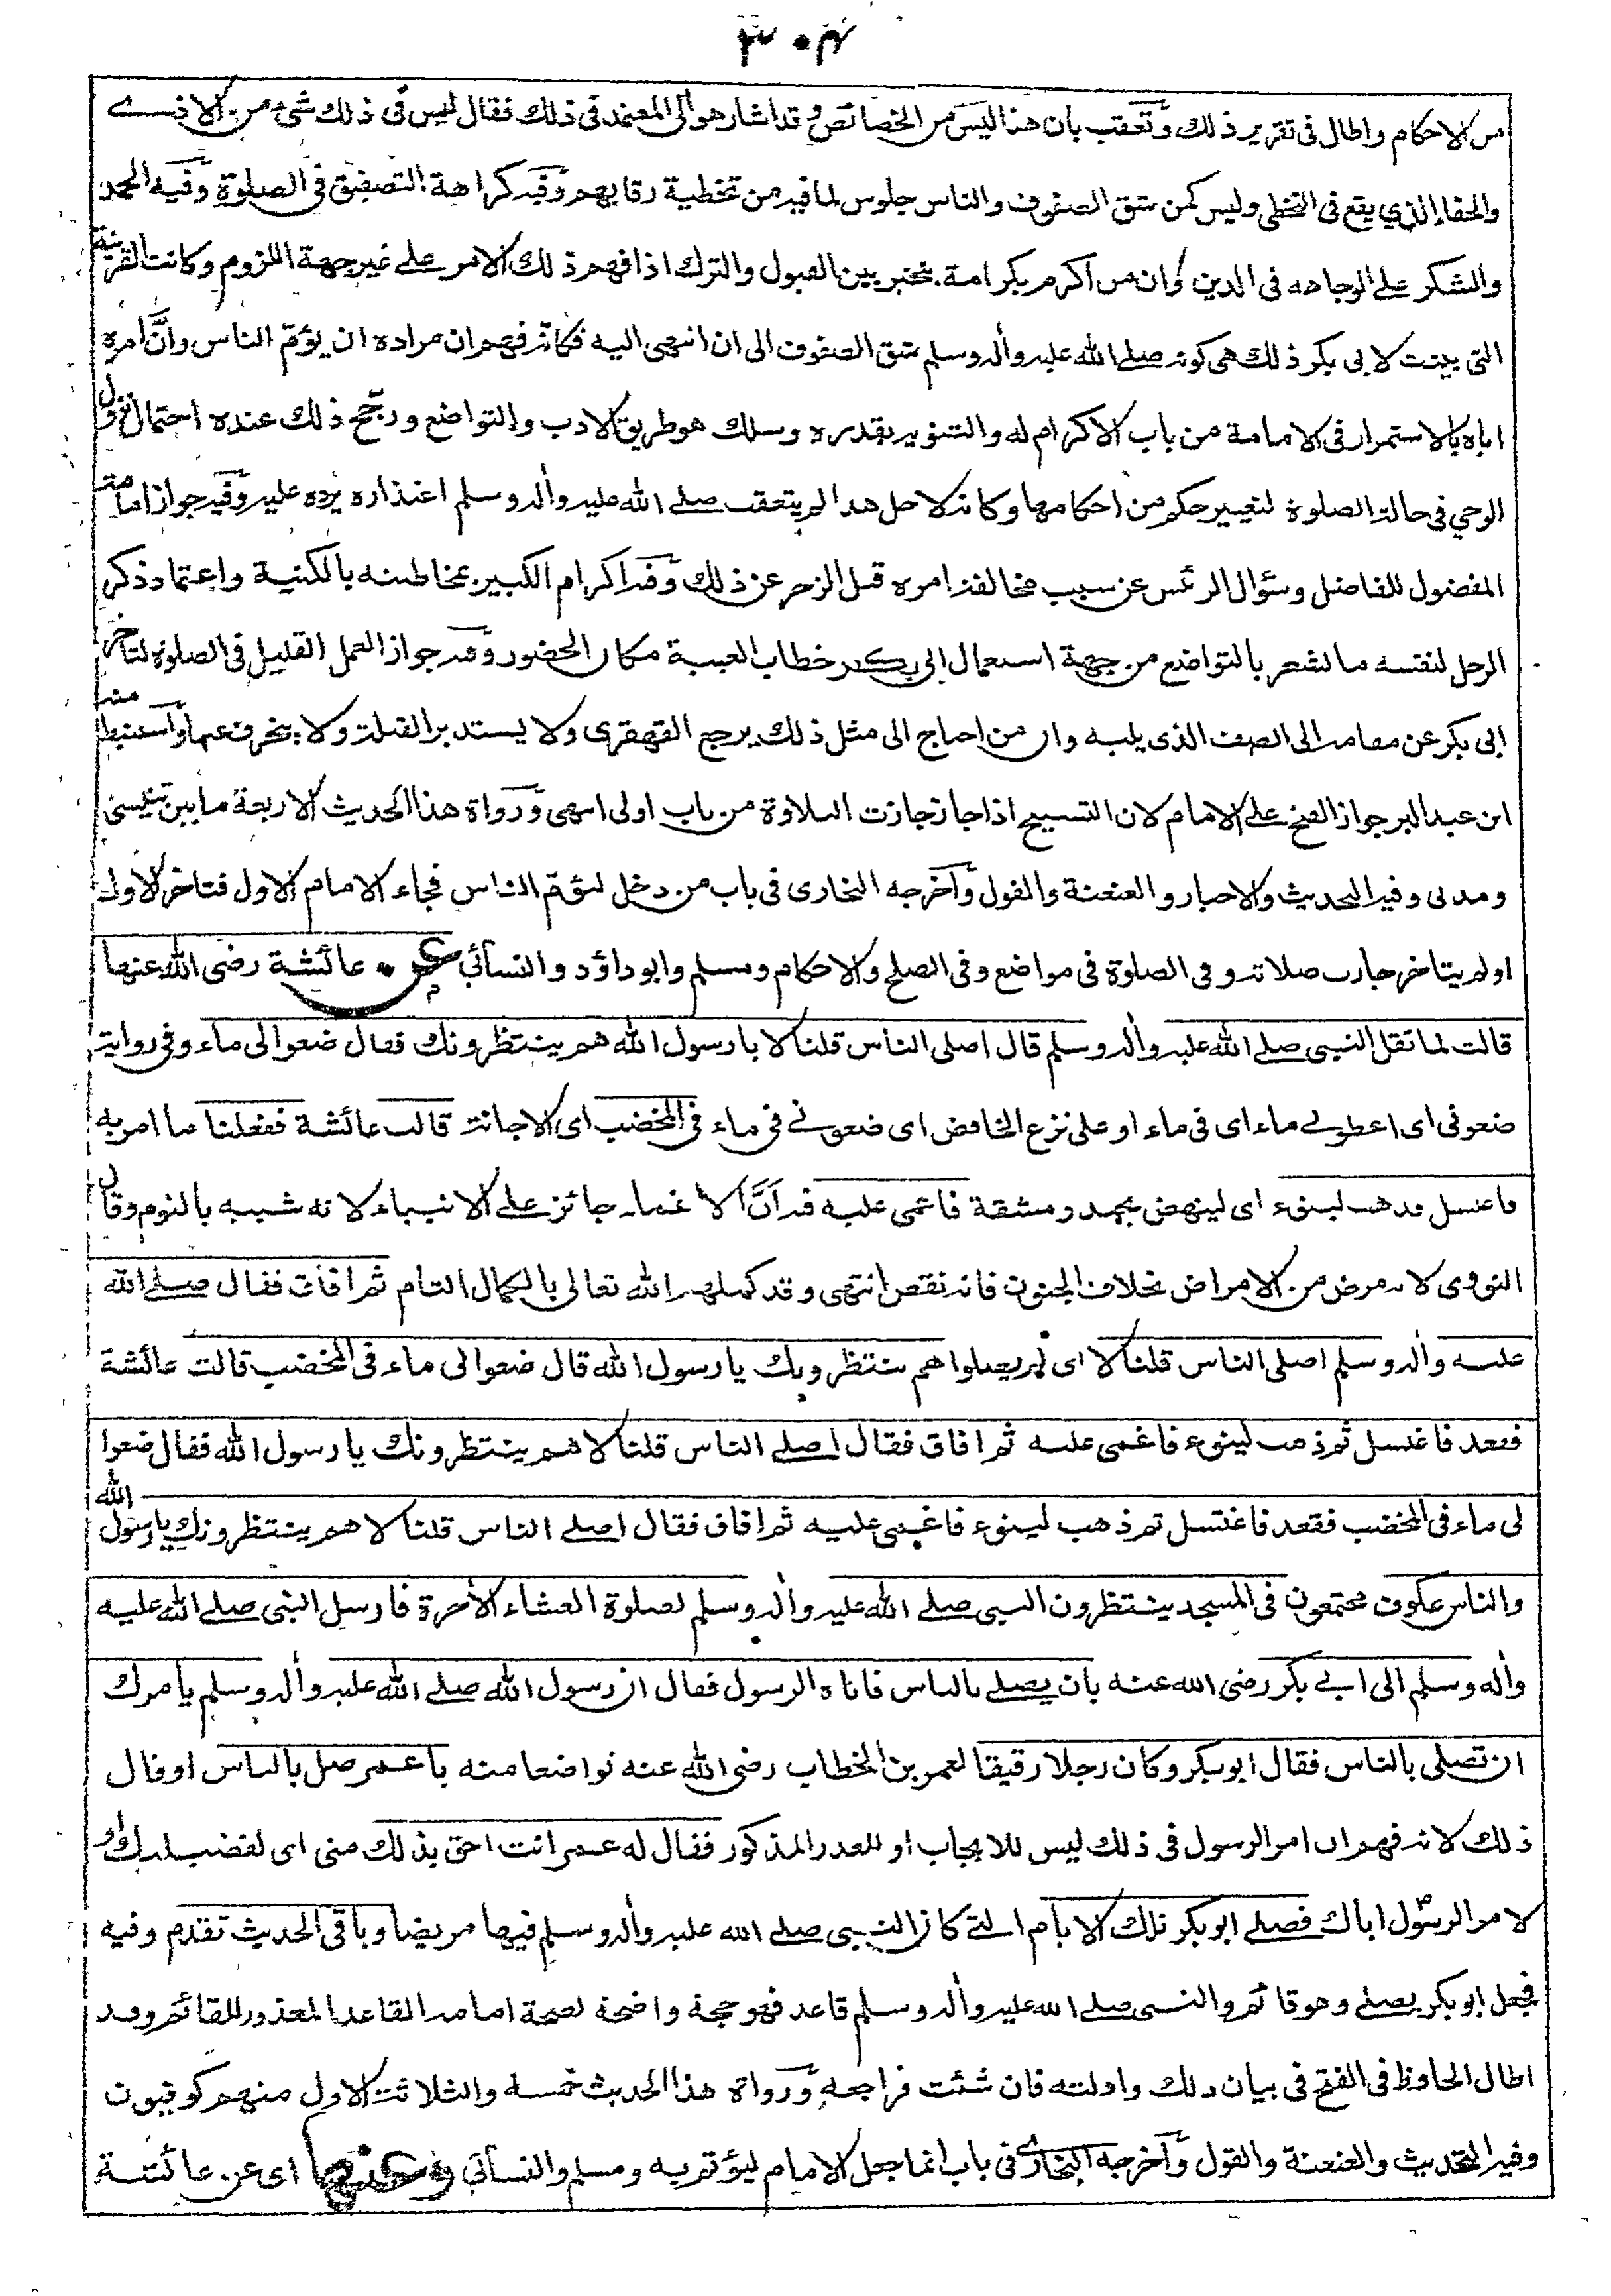 ٣٠٤
من الاحكام واطال فى تقرير ذلك وتعقب بان هذا ليس من الخصائص وقد اشار هو الى المعتمد فى ذلك فقال ليس فى ذلك شئ من الاذے
والجفاء الذي يقع فى التخطى وليس كمن شق الصفوف والناس جلوس لما فيه من تخطية رقابهم وفيه كراهة التصفيق فى الصلوة وفيه الحمد
والشكر على الوجاهه فى الدين وان من اكرم بكرامة يخير بين القبول والترك اذا فهم ذلك الامر على غير جهة اللزوم وكانت القرينة
التى بينت لابى بكر ذلك هى كونه صلے الله عليه واٰله وسلم شق الصفوف الى ان انتهى اليه فكانه فهم ان مراده ان يؤمّ الناس وانّ امره
اياه بالاستمرار فى الامامة من باب الاكرام له والتنويه بقدره وسلك هو طريق الادب والتواضع ورجّح ذلك عنده احتمال نزول
الوحي فى حالة الصلوة لتغيير حكم من احكامها وكانه لاجل هذا لم يتعقب صلے الله عليه واٰله وسلم اعتذاره برده عليه وفيه جواز امامة
المفضول للفاضل وسؤال الرئس عن سبب مخالفة امره قبل الزجر عن ذلك وفيه اكرام الكبير بمخاطبته بالكنية واعتماد ذكر
الرجل لنفسه ما يشعر بالتواضع من جهة استعمال ابى بكر خطاب الغيبة مكان الحضور وفيه جواز العمل القليل فى الصلوة لتاخر
ابى بكر عن مقامه الى الصف الذى يليه وان من احتاج الى مثل ذلك يرجع القهقرى ولا يستدبر القبلة ولا ينحرف عنها واستنبط منه
ابن عبد البر جواز الفتح على الامام لان التسبيح اذا جاز جازت التلاوة من باب اولى انتهى ورواة هذا الحديث الاربعة ما بين تنيسى
ومدنى وفيه التحديث والاخبار والعنعنة والقول وآخرجه البخارى فى باب من دخل ليؤمّ الناس فجاء الامام الاول فتاخر الاول
اولم يتاخر جازت صلاته وفى الصلوة فى مواضع وفى الصلح والاحكام ومسلم وابوداؤد والنسائى عن عائشة رضى الله عنها
قالت لما ثقل النبى صلے الله عليه واٰله وسلم قال اصلى الناس قلنا لا يا رسول الله هم ينتظرونك فقال ضعوا لى ماء وفى رواية
ضعونى اى اعطونى ماء اى فى ماء او على نزع الخافض اى ضعونے فى ماء فى المخضب اى الاجانة قالت عائشة ففعلنا ما امر به
فاغتسل فذهب لينوء اى لينهض بجهد ومشقة فاغمى عليه فيه انّ الاغماء جائز على الانبياء لانه شبيه بالنوم وقال
النووى لانه مرض من الامراض بخلاف الجنون فانه نقص انتهى وقد كملهم الله تعالى بالكمال التام ثم افاق فقال صلے الله
عليه واٰله وسلم اصلى الناس قلنا لا اى لم يصلوا هم ينتظرونك يا رسول الله قال ضعوا لى ماء فى المخضب قالت عائشة
فقعد فاغتسل ثم ذهب لينوء فاغمى عليه ثم افاق فقال اصلے الناس قلنا لا هم ينتظرونك يا رسول الله فقال ضعوا
لى ماء فى المخضب فقعد فاغتسل ثم ذهب لينوء فاغمى عليه ثم افاق فقال اصلے الناس قلنا لا هم ينتظرونك يا رسول الله
والناس عكوف مجتمعون فى المسجد ينتظرون النبى صلے الله عليه واٰله وسلم لصلوة العشاء الآخرة فارسل النبى صلے الله عليه
واٰله وسلم الى ابے بكر رضى الله عنه بان يصلے بالناس فاتاه الرسول فقال ان رسول الله صلے الله عليه واٰله وسلم يأمرك
ان تصلى بالناس فقال ابوبكر وكان رجلا رقيقا لعمر بن الخطاب رضى الله عنه تواضعا منه يا عمر صل بالناس او قال
ذلك لانه فهم ان امر الرسول فى ذلك ليس للايجاب او للعذر المذكور فقال له عمر انت احق بذلك منى اى لفضيلتك او
لامر الرسول اياك فصلے ابوبكر تلك الايام التے كان النبى صلے الله عليه واٰله وسلم فيها مريضا وباقى الحديث تقدم وفيه
فجعل ابوبكر يصلے وهو قائم والنبى صلے الله عليه واٰله وسلم قاعد فهو حجة واضحة لصحة امامة القاعد المعذور للقائم وقد
اطال الحاوظ فى الفتح فى بيان ذلك وادلته فان شئت فراجعه ورواة هذا الحديث خمسة والثلاثة الاول منهم كوفيون
وفيه التحديث والعنعنة والقول وآخرجه البخارى فى باب انما جعل الامام ليؤتم به ومسلم والنسائى وعنها اى عن عائشة